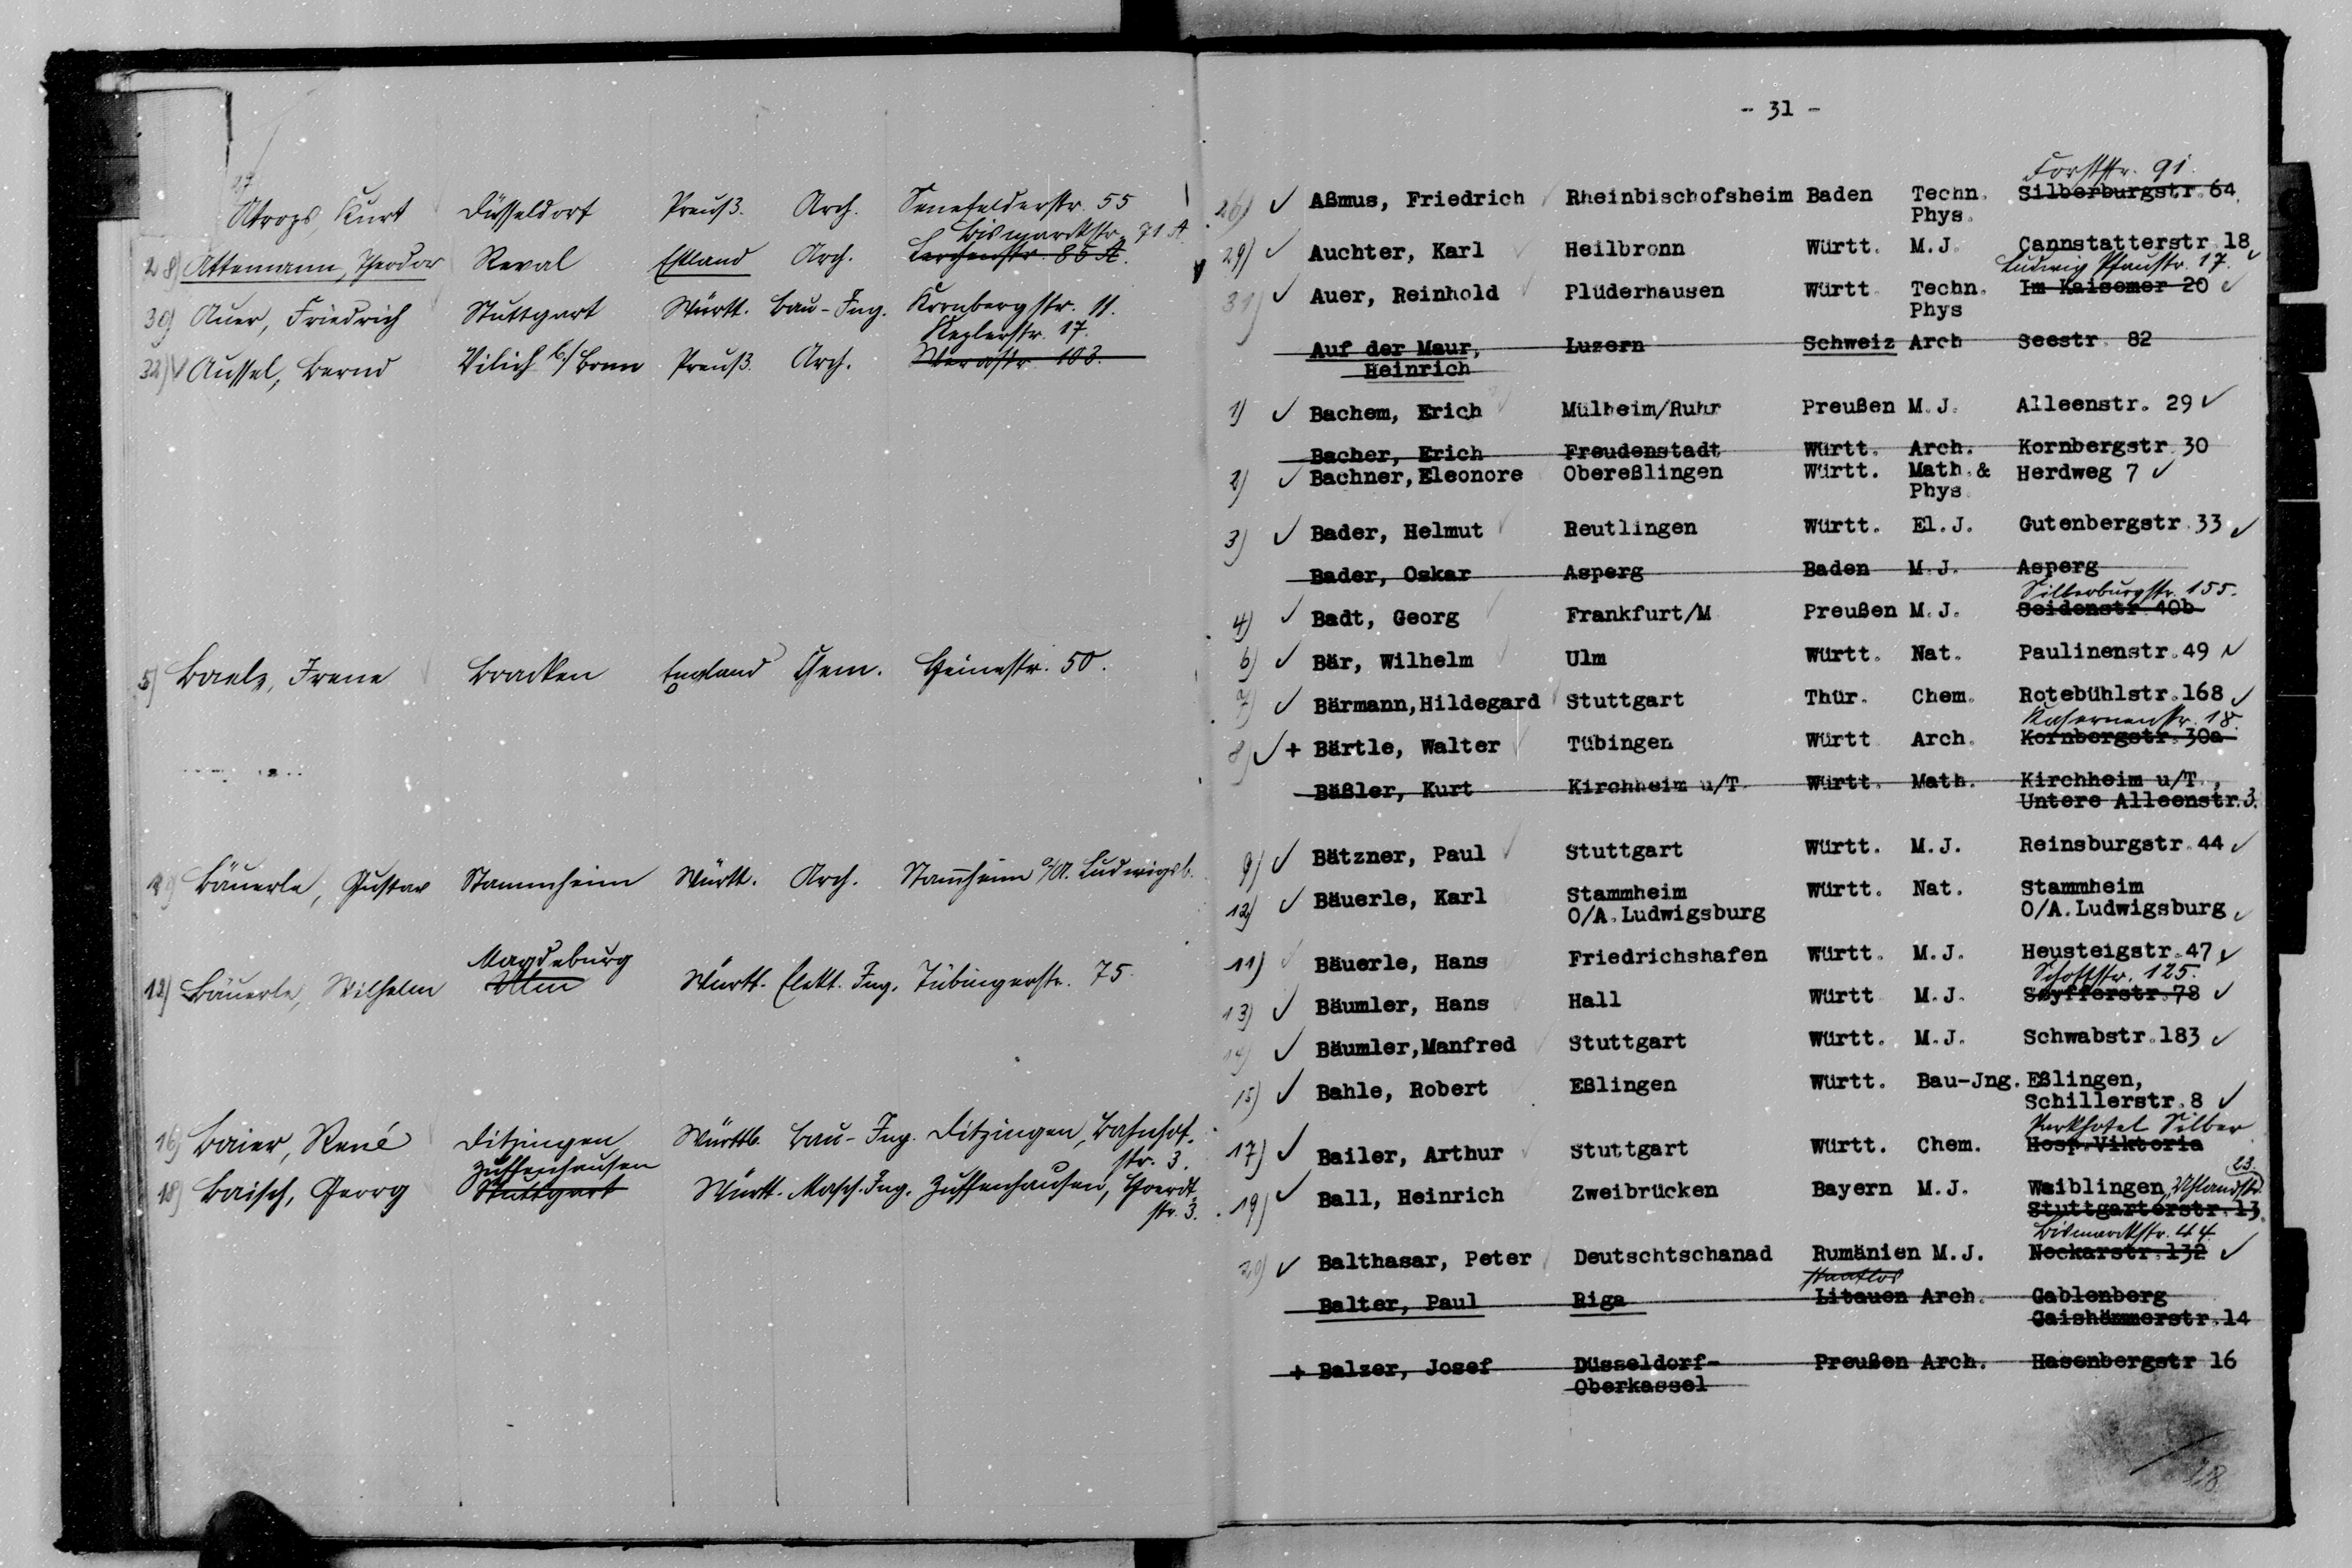 27
Atrops, Kurt Düsseldorf Preuß. Arch. Senefelderstr. 55
Bismarckstr. 71 A.
28) Attemann, Theodor Reval Estland Arch. Lerchenstr. 86 A.
30) Auer, Friedrich Stuttgart Württ. Bau-Ing. Kornbergstr. 11.
Keplerstr. 17.
32) ✓ Aussel, Bernd Vilich b./Bonn Preuß. Arch. Werastr. 103.
5) Baelz, Irene Bracken England Chem. Heinestr. 50.
Bäuerle, Gustav Stammheim Württ. Arch. Stammheim O/A. Ludwigsb.
Magdeburg
12) Bäuerle, Wilhelm Ulm Württ. Elekt. Ing. Tübingerstr. 75.
16) Baier, René Ditzingen Württb. Bau-Ing. Ditzingen, Bahnhof-
str. 3.
Zuffenhausen
18) Baisch, Georg Stuttgart Württ. Masch. Ing. Zuffenhausen,
str. 3.
- 31 -
Forststr. 91.
26) ✓ Aßmus, Friedrich Rheinbischofsheim Baden Techn. Silberburgstr. 64
Phys.
29) ✓ Auchter, Karl Heilbronn Württ. M.J. Cannstatterstr. 18
Ludwig Pfaustr. 17.
31) ✓ Auer, Reinhold Plüderhausen Württ Techn. Im Kaisemer 20 ✓
Phys
Auf der Maur, Luzern Schweiz Arch Seestr. 82
Heinrich
1) ✓ Bachem, Erich Mülheim/Ruhr Preußen M.J. Alleenstr. 29 ✓
Bacher, Erich Freudenstadt Württ. Arch. Kornbergstr. 30
2) ✓ Bachner, Eleonore Obereßlingen Württ. Math. & Herdweg 7 ✓
Phys.
3) ✓ Bader, Helmut Reutlingen Württ. El.J. Gutenbergstr. 33 ✓
Bader, Oskar Asperg Baden M.J. Asperg
Silberburgstr. 155.
4) ✓ Badt, Georg Frankfurt/M Preußen M.J. Seidenstr. 40b
6) ✓ Bär, Wilhelm Ulm Württ. Nat. Paulinenstr. 49 ✓
7) ✓ Bärmann, Hildegard Stuttgart Thür. Chem. Rotebühlstr. 168 ✓
Kasernenstr. 18.
8) ✓ + Bärtle, Walter Tübingen Württ Arch. Kornbergstr. 30a
Bäßler, Kurt Kirchheim u/T. Württ. Math. Kirchheim u/T.,
Untere Alleenstr. 3.
9) ✓ Bätzner, Paul Stuttgart Württ. M.J. Reinsburgstr. 44 ✓
12) ✓ Bäuerle, Karl Stammheim Württ. Nat. Stammheim
O/A. Ludwigsburg O/A. Ludwigsburg ✓
11) ✓ Bäuerle, Hans Friedrichshafen Württ. M.J. Heusteigstr. 47 ✓
125.
13) ✓ Bäumler, Hans Hall Württ M.J. Seyfferstr. 78 ✓
14) ✓ Bäumler, Manfred Stuttgart Württ. M.J. Schwabstr. 183 ✓
15) ✓ Bahle, Robert Eßlingen Württ. Bau-Jng. Eßlingen,
Schillerstr. 8 ✓
Parkhotel Silber
17) ✓ Bailer, Arthur Stuttgart Württ. Chem. Hosp. Viktoria
23.
19) ✓ Ball, Heinrich Zweibrücken Bayern M.J. Waiblingen, Uhlandstr.
Stuttgarterstr. 13
Bismarckstr. 44.
20) ✓ Balthasar, Peter Deutschtschanad Rumänien M.J. Neckarstr. 132 ✓
staatlos
Balter, Paul Riga Litauen Arch. Gablenberg
Gaishämmerstr. 14
+ Balzer, Josef Düsseldorf- Preußen Arch. Hasenbergstr 16
Oberkassel
18